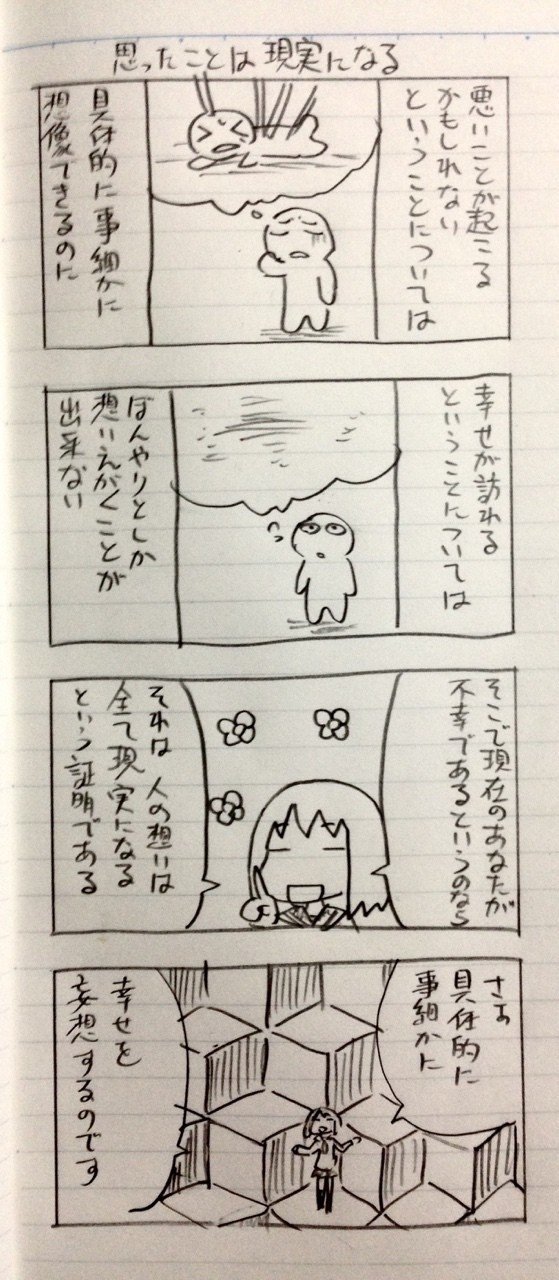 思ったことは現実になる
悪いことが起こる
かもしれない
ということについては
具体的に事細かに
想像できるのに
幸せが訪れる
ということについては
ぼんやりとしか
想いえがくことが
出来ない
そこで現在のあなたが
不幸であるというのなら
それは人の想いは
全て現実になる
という証明である
さぁ
具体的に
事細かに
幸せを
妄想するのです